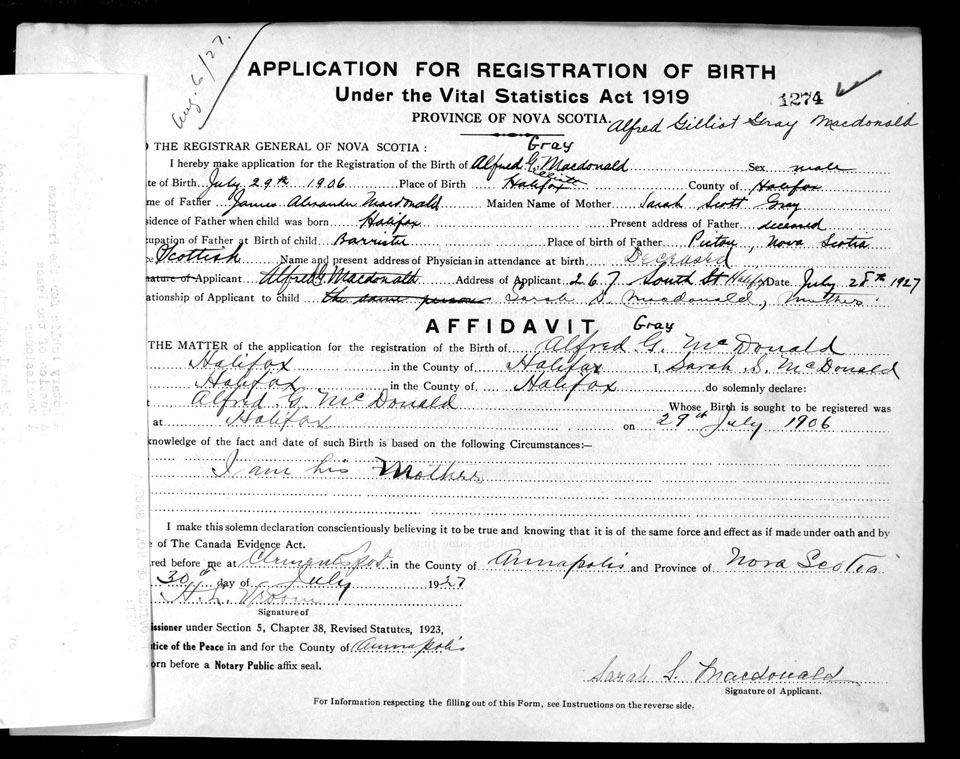 Aug. 6/27.
APPLICATION FOR REGISTRATION OF BIRTH
Under the Vital Statistics Act 1919
1274
PROVINCE OF NOVA SCOTIA.
Alfred Gilliot Gray Macdonald
O THE REGISTRAR GENERAL OF NOVA SCOTIA :
Gray
I hereby make application for the Registration of the Birth of Alfred G. Macdonald Sex male
te of Birth July 29th 1906 Place of Birth Halifax County of Halifax
me of Father James Alexander Macdonald Maiden Name of Mother Sarah Scott Gray
sidence of Father when child was born Halifax Present address of Father deceased
cupation of Father at Birth of child Barrister Place of birth of Father Pictou, Nova Scotia
e Scottish Name and present address of Physician in attendance at birth Deceased
nature of Applicant Alfred G Macdonald Address of Applicant 267 South St Halifax Date July 28th 1927
lationship of Applicant to child the same person Sarah S. Macdonald, Mother
AFFIDAVIT
Gray
THE MATTER of the application for the registration of the Birth of Alfred G. McDonald
Halifax in the County of Halifax I, Sarah S. McDonald
Halifax in the County of Halifax do solemnly declare:
t Alfred G. McDonald Whose Birth is sought to be registered was
at Halifax on 29th July 1906
knowledge of the fact and date of such Birth is based on the following Circumstances:—
I am his Mother
I make this solemn declaration conscientiously believing it to be true and knowing that it is of the same force and effect as if made under oath and by
e of The Canada Evidence Act.
red before me at Clementsport in the County of Annapolis and Province of Nova Scotia
30th day of July 1927
H. L. Vroom
Signature of
issioner under Section 5, Chapter 38, Revised Statutes, 1923,
tice of the Peace in and for the County of Annapolis
orn before a Notary Public affix seal.
Sarah S. Macdonald
Signature of Applicant.
For Information respecting the filling out of this Form, see Instructions on the reverse side.